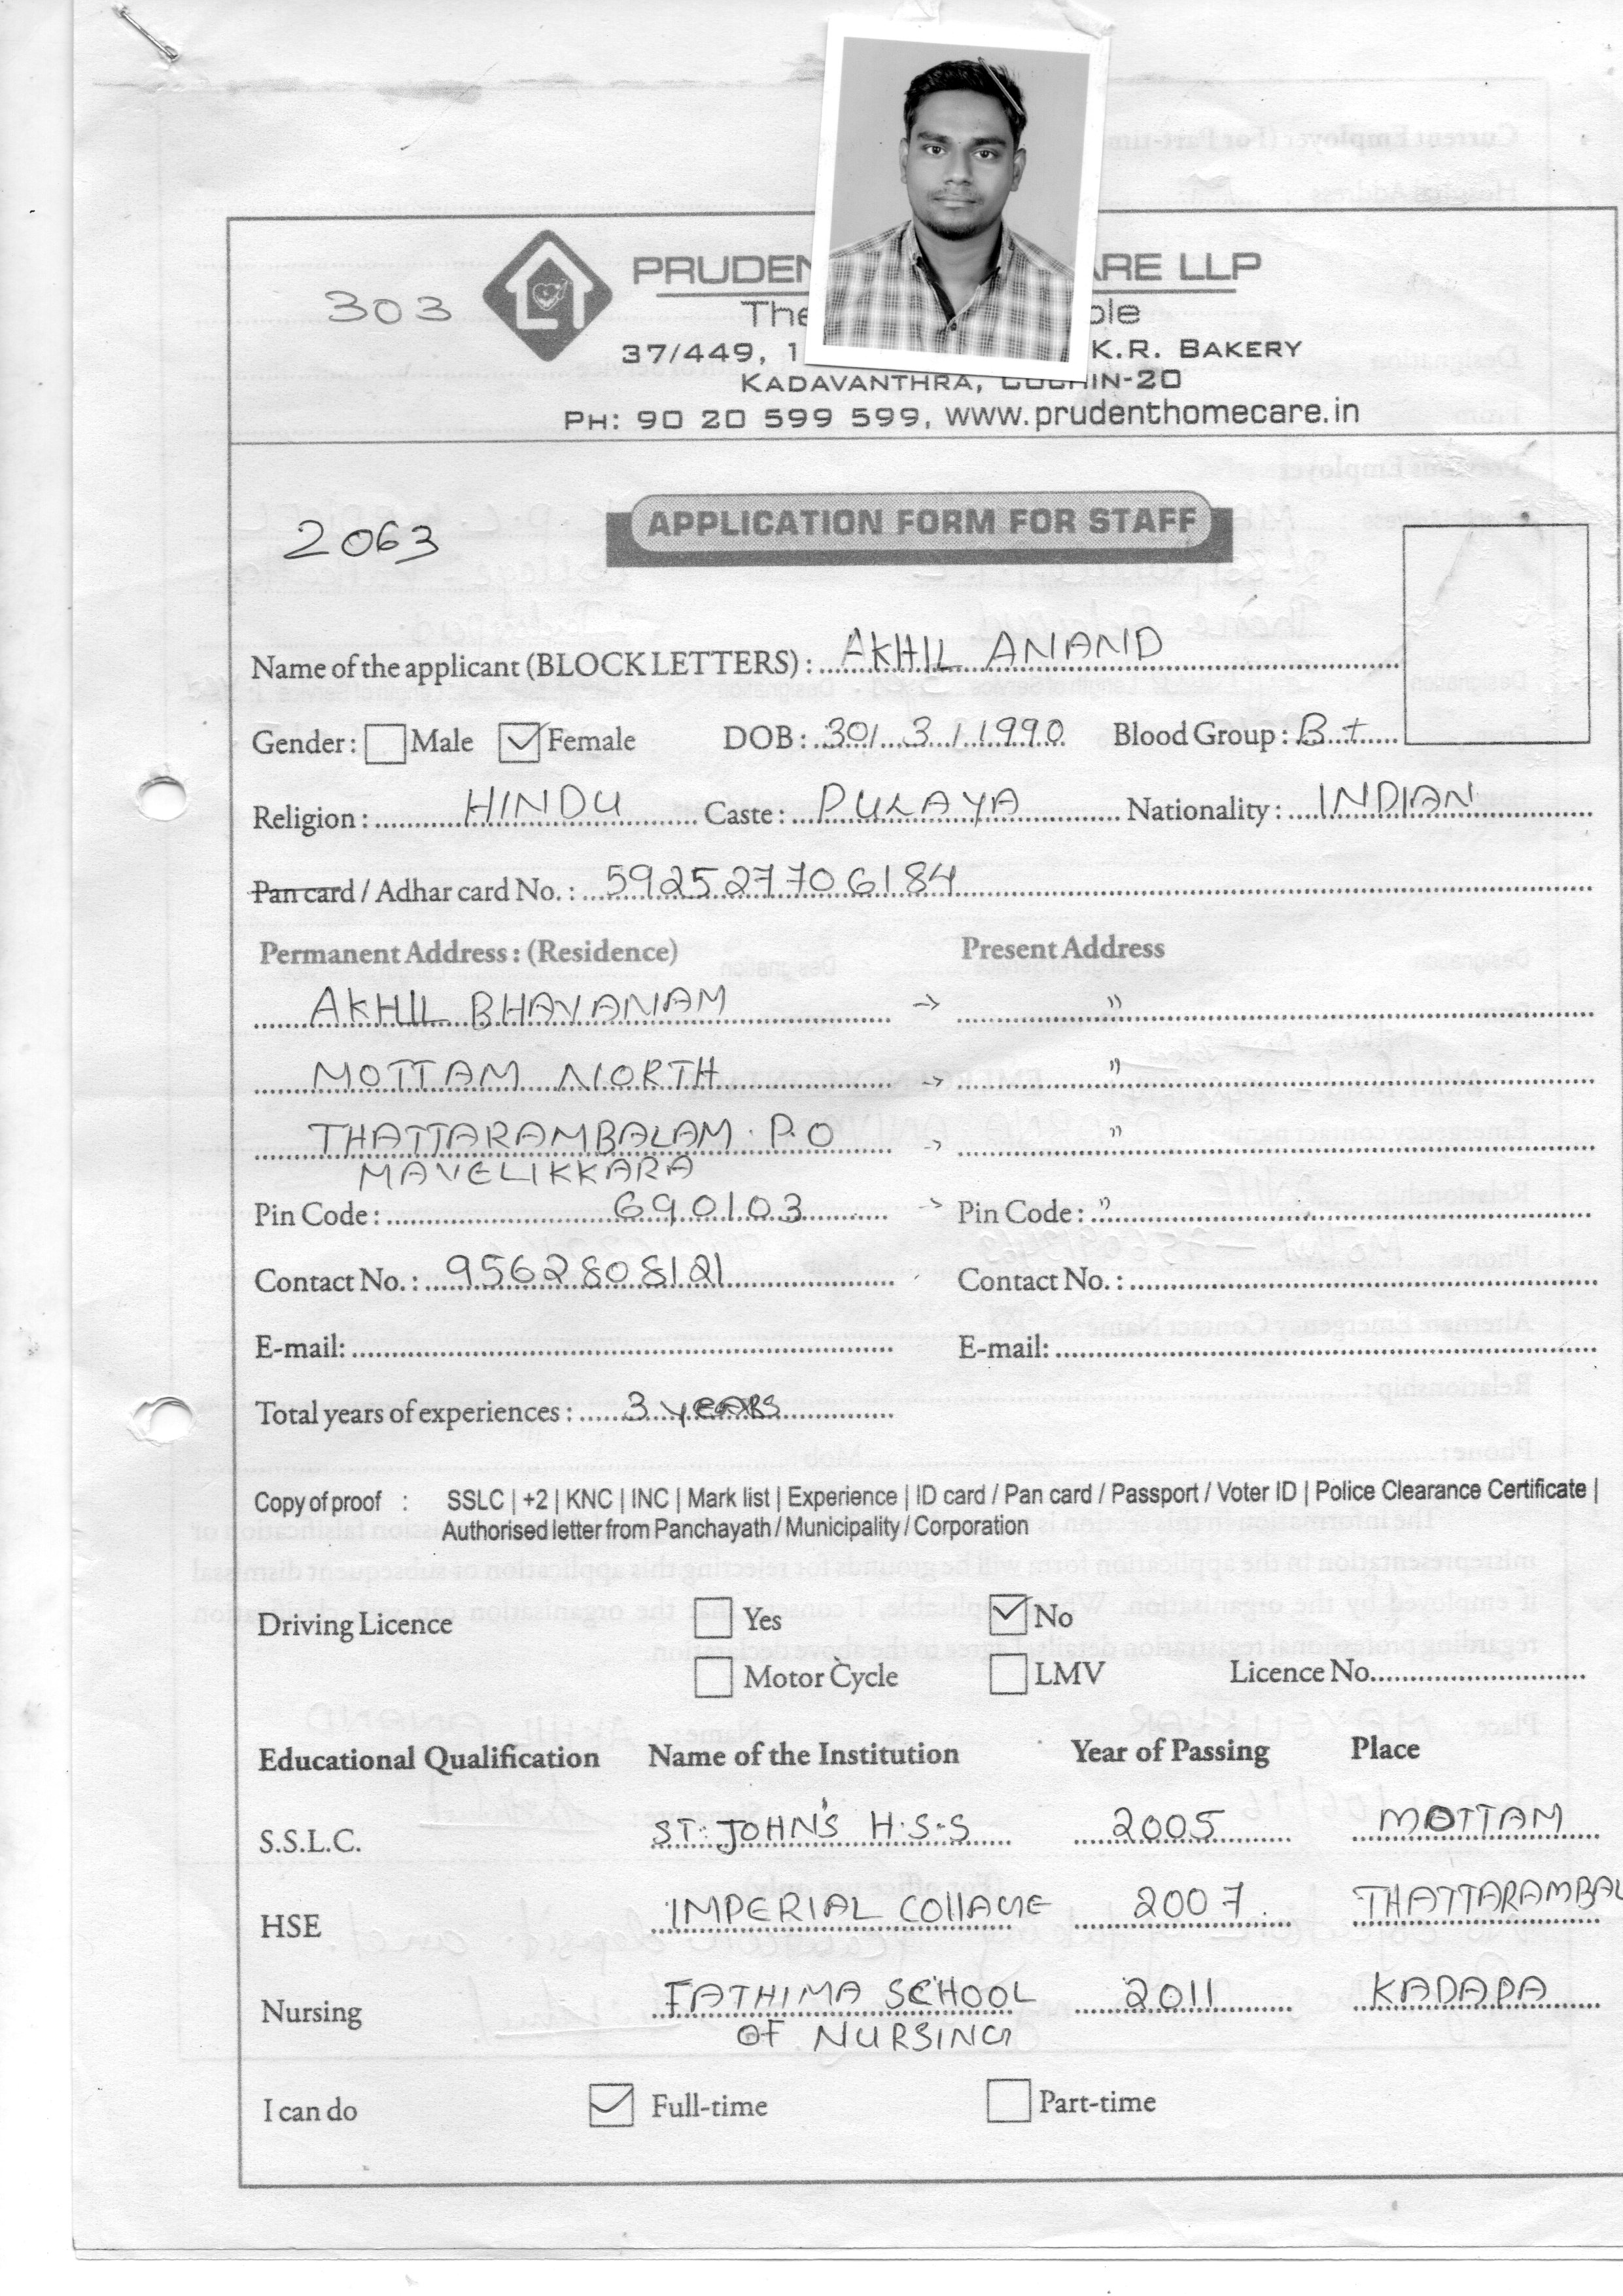 303
PRUDEN ARE LLP
The ple
37/449, 1 K.R. BAKERY
KADAVANTHRA, COCHIN-20
PH: 90 20 599 599, www.prudenthomecare.in
2063
APPLICATION FORM FOR STAFF
Name of the applicant (BLOCK LETTERS) : AKHIL ANAND
Gender : Male Female DOB : 30/ 3 / 1990 Blood Group : B +
Religion : HINDU Caste : PULAYA Nationality : INDIAN
Pan card / Adhar card No. : 592527706184
Permanent Address : (Residence) Present Address
AKHIL BHAVANAM → "
MOTTAM NORTH → "
THATTARAMBALAM . P.O → "
MAVELIKKARA
Pin Code : 690103 → Pin Code : "
Contact No. : 9562808121 Contact No. :
E-mail: E-mail:
Total years of experiences : 3 YEARS
Copy of proof : SSLC | +2 | KNC | INC | Mark list | Experience | ID card / Pan card / Passport / Voter ID | Police Clearance Certificate |
Authorised letter from Panchayath / Municipality / Corporation
Driving Licence Yes No
Motor Cycle LMV Licence No.
Educational Qualification Name of the Institution Year of Passing Place
S.S.L.C. ST. JOHN'S H.S.S 2005 MOTTAM
HSE IMPERIAL COllAGE 2007. THATTARAMBAL
Nursing FATHIMA SCHOOL 2011 KADAPA
OF NURSING
I can do Full-time Part-time